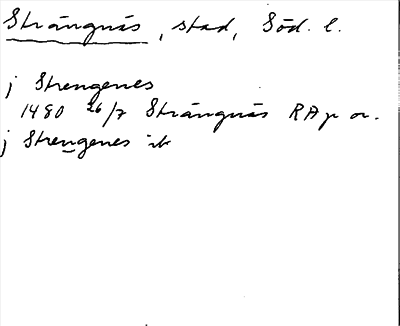 Strängnäs, stad, Söd. l.
j Strengenes
1480 26/7 Strängnäs RAp or.
j Strengenes ib